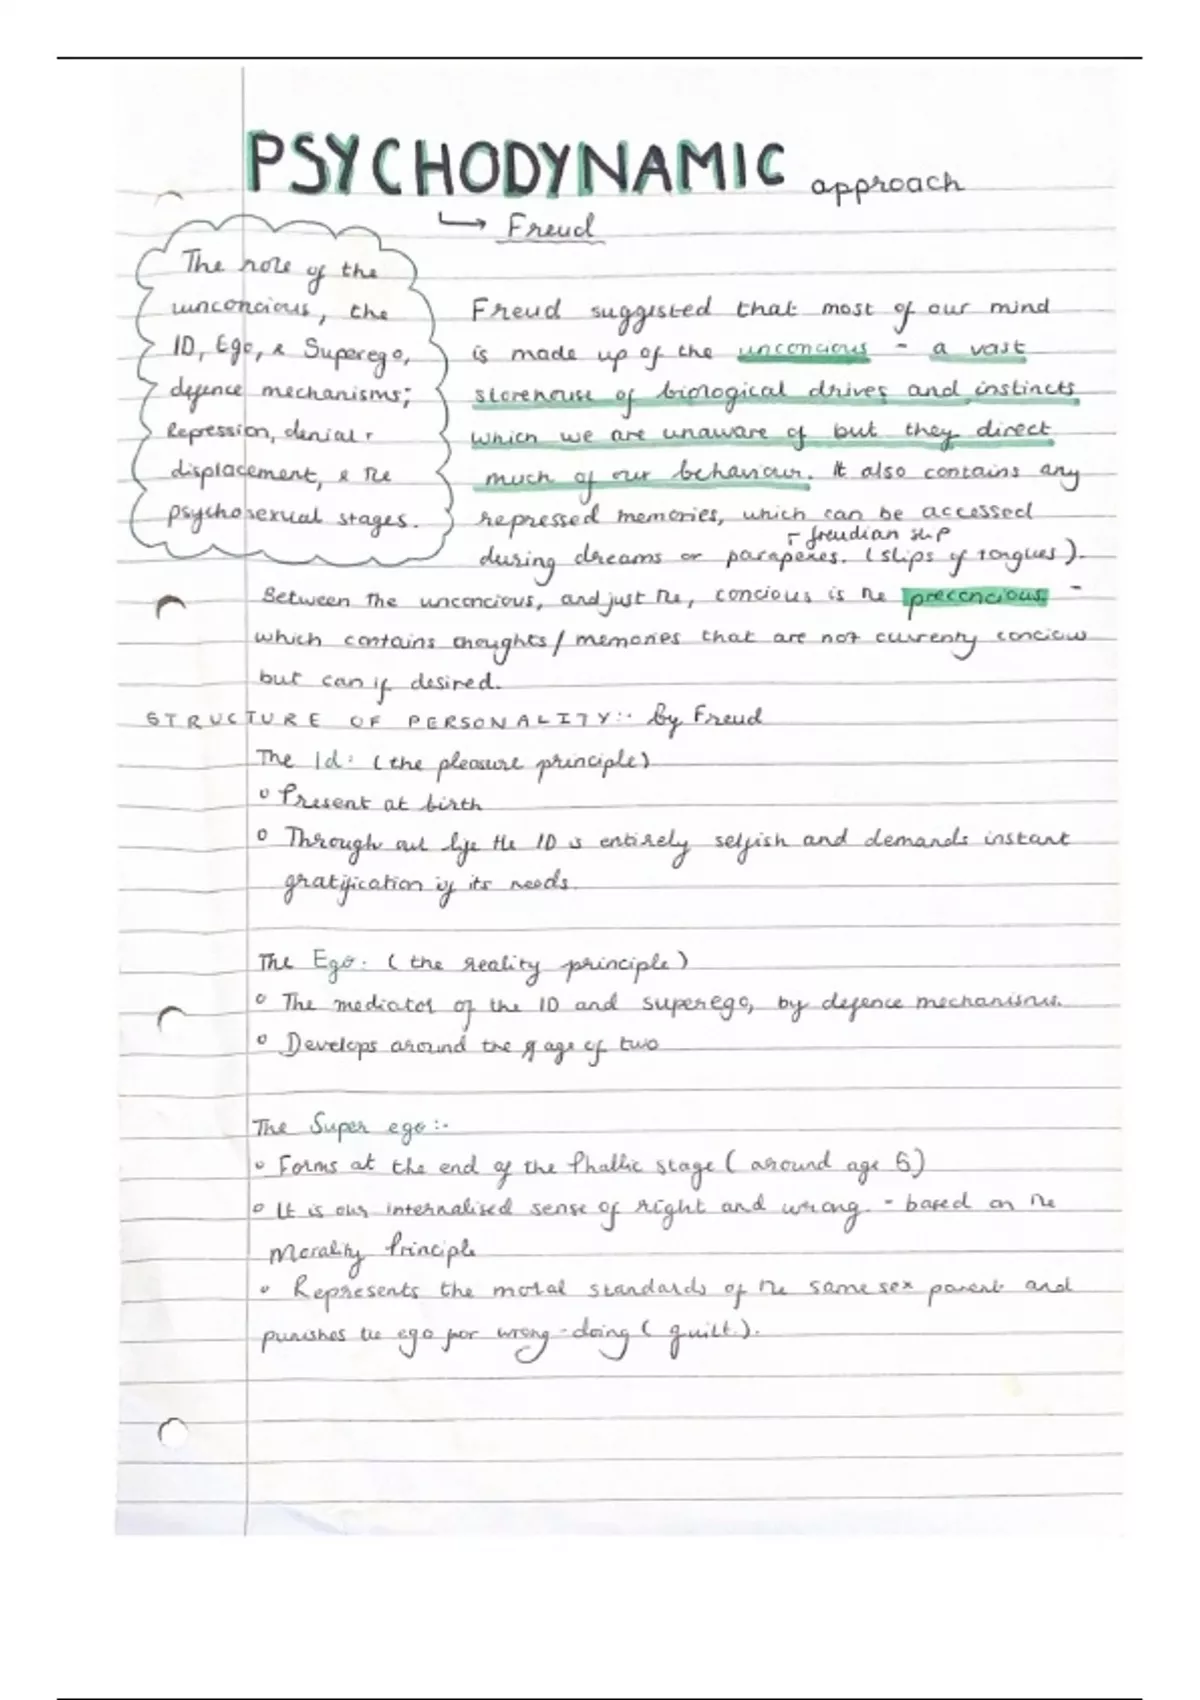 PSYCHODYNAMIC approach
↳ Freud
The role of the
unconcious, the
ID, Ego, & Superego,
defence mechanisms;
Repression, denial,
displacement, & the
psychosexual stages.
Freud suggested that most of our mind
is made up of the unconcious - a vast
storehouse of biological drives and instincts
which we are unaware of but they direct
much of our behaviour. It also contains any
repressed memories, which can be accessed
freudian slip
during dreams or parapexes. (slips of tongues).
Between the unconcious, and just the, concious is the preconcious -
which contains thoughts/memories that are not currenty concious
but can if desired.
STRUCTURE OF PERSONALITY:- by Freud
The Id: (the pleasure principle)
° Present at birth
° Through out life the ID is entirely selfish and demands instant
gratification if its needs.
The Ego: (the reality principle)
° The mediator of the ID and superego, by defence mechanisms.
° Develops around the age of two
The Super ego:-
° Forms at the end of the Phallic stage (around age 6)
° It is our internalised sense of right and wrong. - based on the
Morality Principle
° Represents the moral standards of the same sex parent and
punishes the ego for wrong-doing (guilt.).